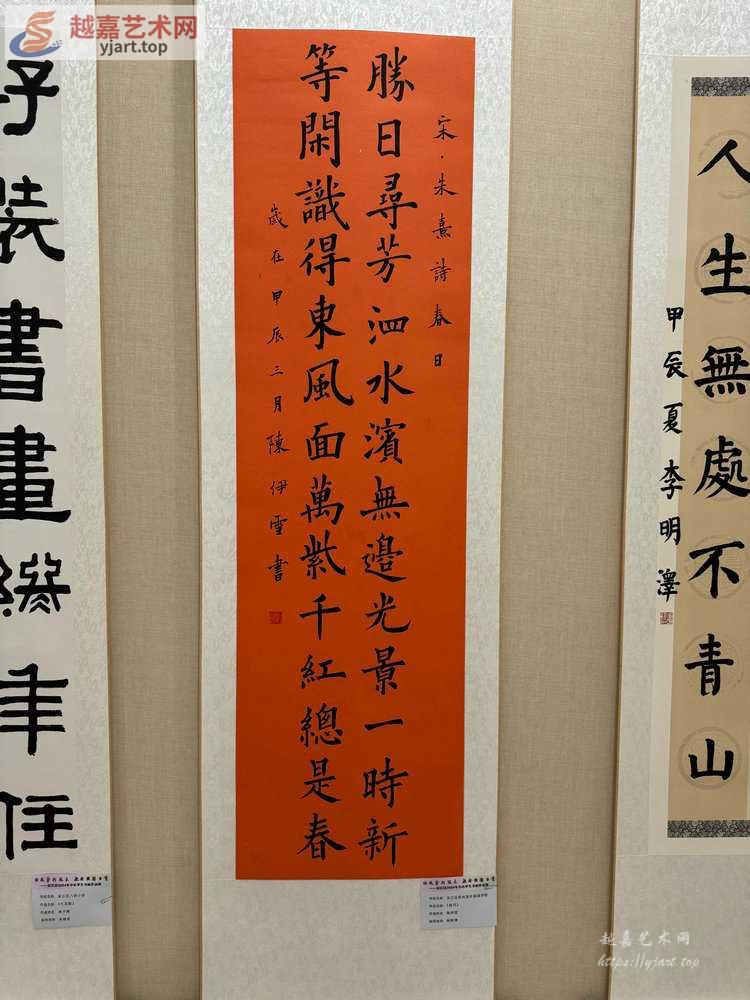 越嘉艺术网
yjart.top
宋·朱熹詩春日
勝日尋芳泗水濱無邊光景一時新
等閑識得東風面萬紫千紅總是春
歲在甲辰三月陳伊雪書
人生無處不青山
甲辰夏李明澤
裝書畫
年住
越嘉艺术网
https://yjart.top